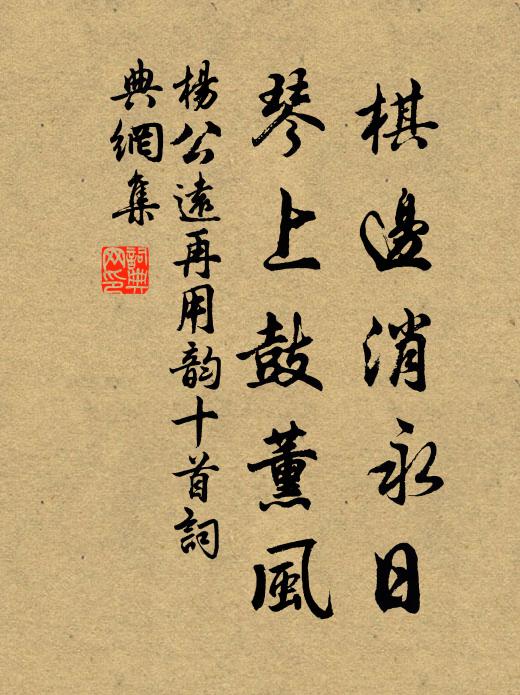 棋邊消永日
琴上鼓薰風
楊公遠再用韵十首詞
典網集
詞典
网印